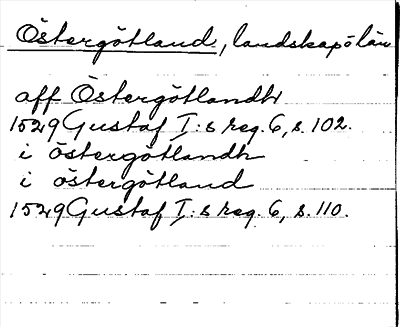 Östergötland, landskap o län
aff Östergötlandh
1529 Gustaf I:s reg. 6, s. 102.
i östergötlandh
i östergötland
1529 Gustaf I:s reg. 6, s. 110.